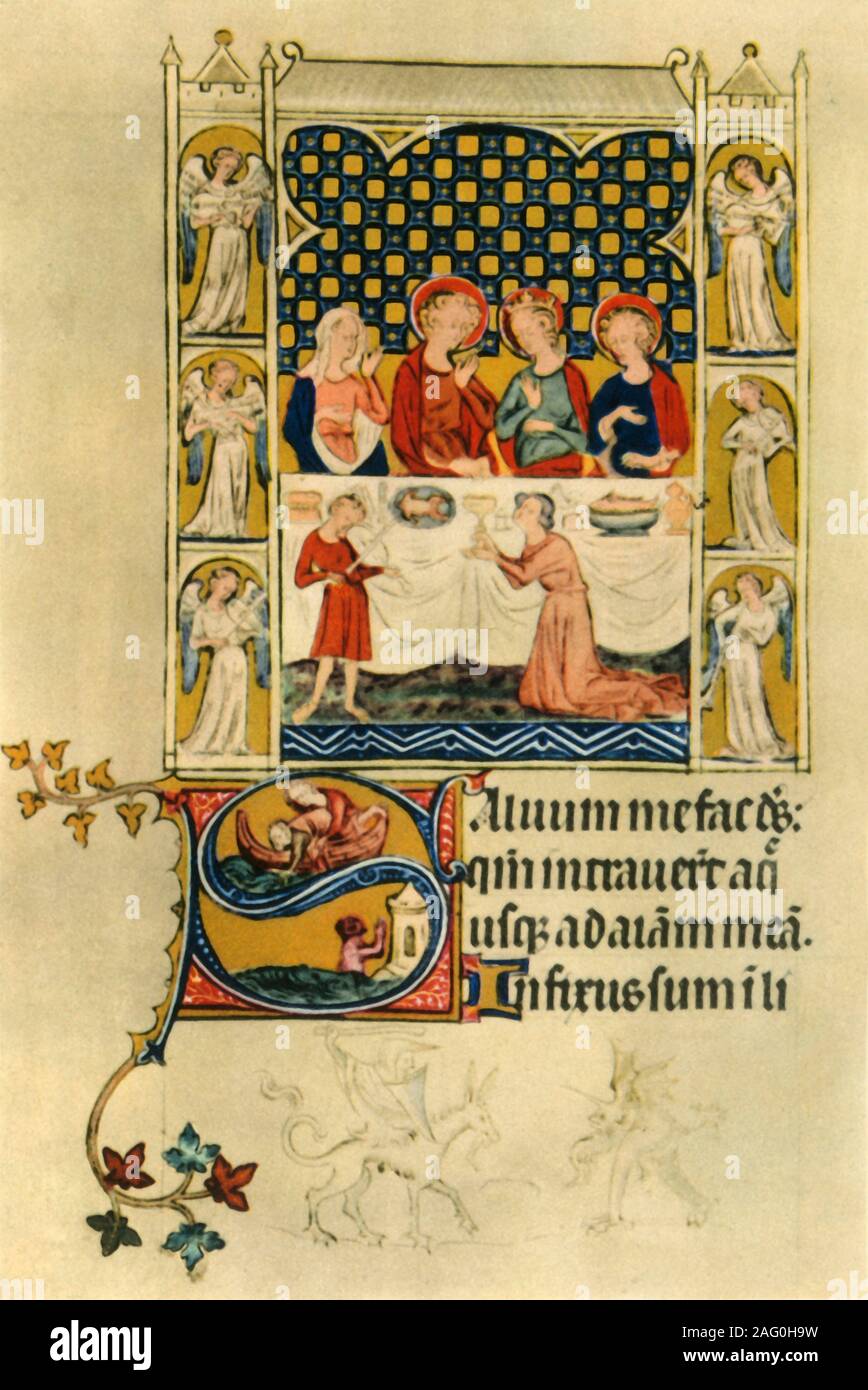 Aluum me fac ds̄:
qm̄ intrauer̄t aq̄
usqȝ ad aīām meā.
Infixus sum ī li
a
alamy
Image ID: 2AG0H9W
www.alamy.com